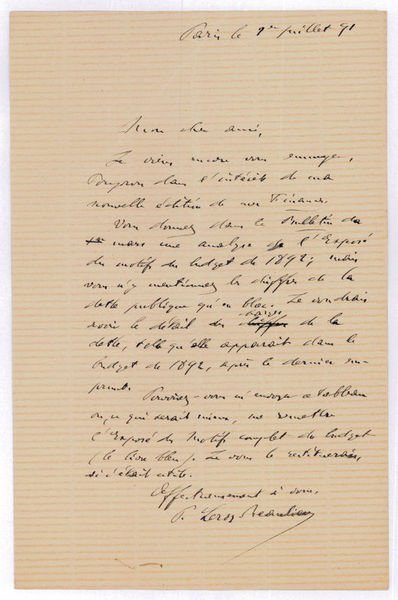 Paris le 1er juillet 91
Mon cher ami,
Je viens encore vous ennuyer,
toujours dans l'intérêt de ma
nouvelle édition de mes Finances.
Vous donnez dans le Bulletin de
mars une analyse de l'Exposé
des motifs du budget de 1892; mais
vous n'y mentionnez les chiffres de la
dette publique qu'en bloc. Je voudrais
avoir le détail des chiffres de la
dette, telle qu'elle apparait dans le
budget de 1892, après le dernier em-
prunt.
Pourriez-vous m'envoyer ce tableau
ou, ce qui serait mieux, me remettre
l'Exposé des Motifs complet du budget
(le livre bleu). Je vous le restituerais,
si c'était utile.
Affectueusement à vous,
P. Leroy-Beaulieu